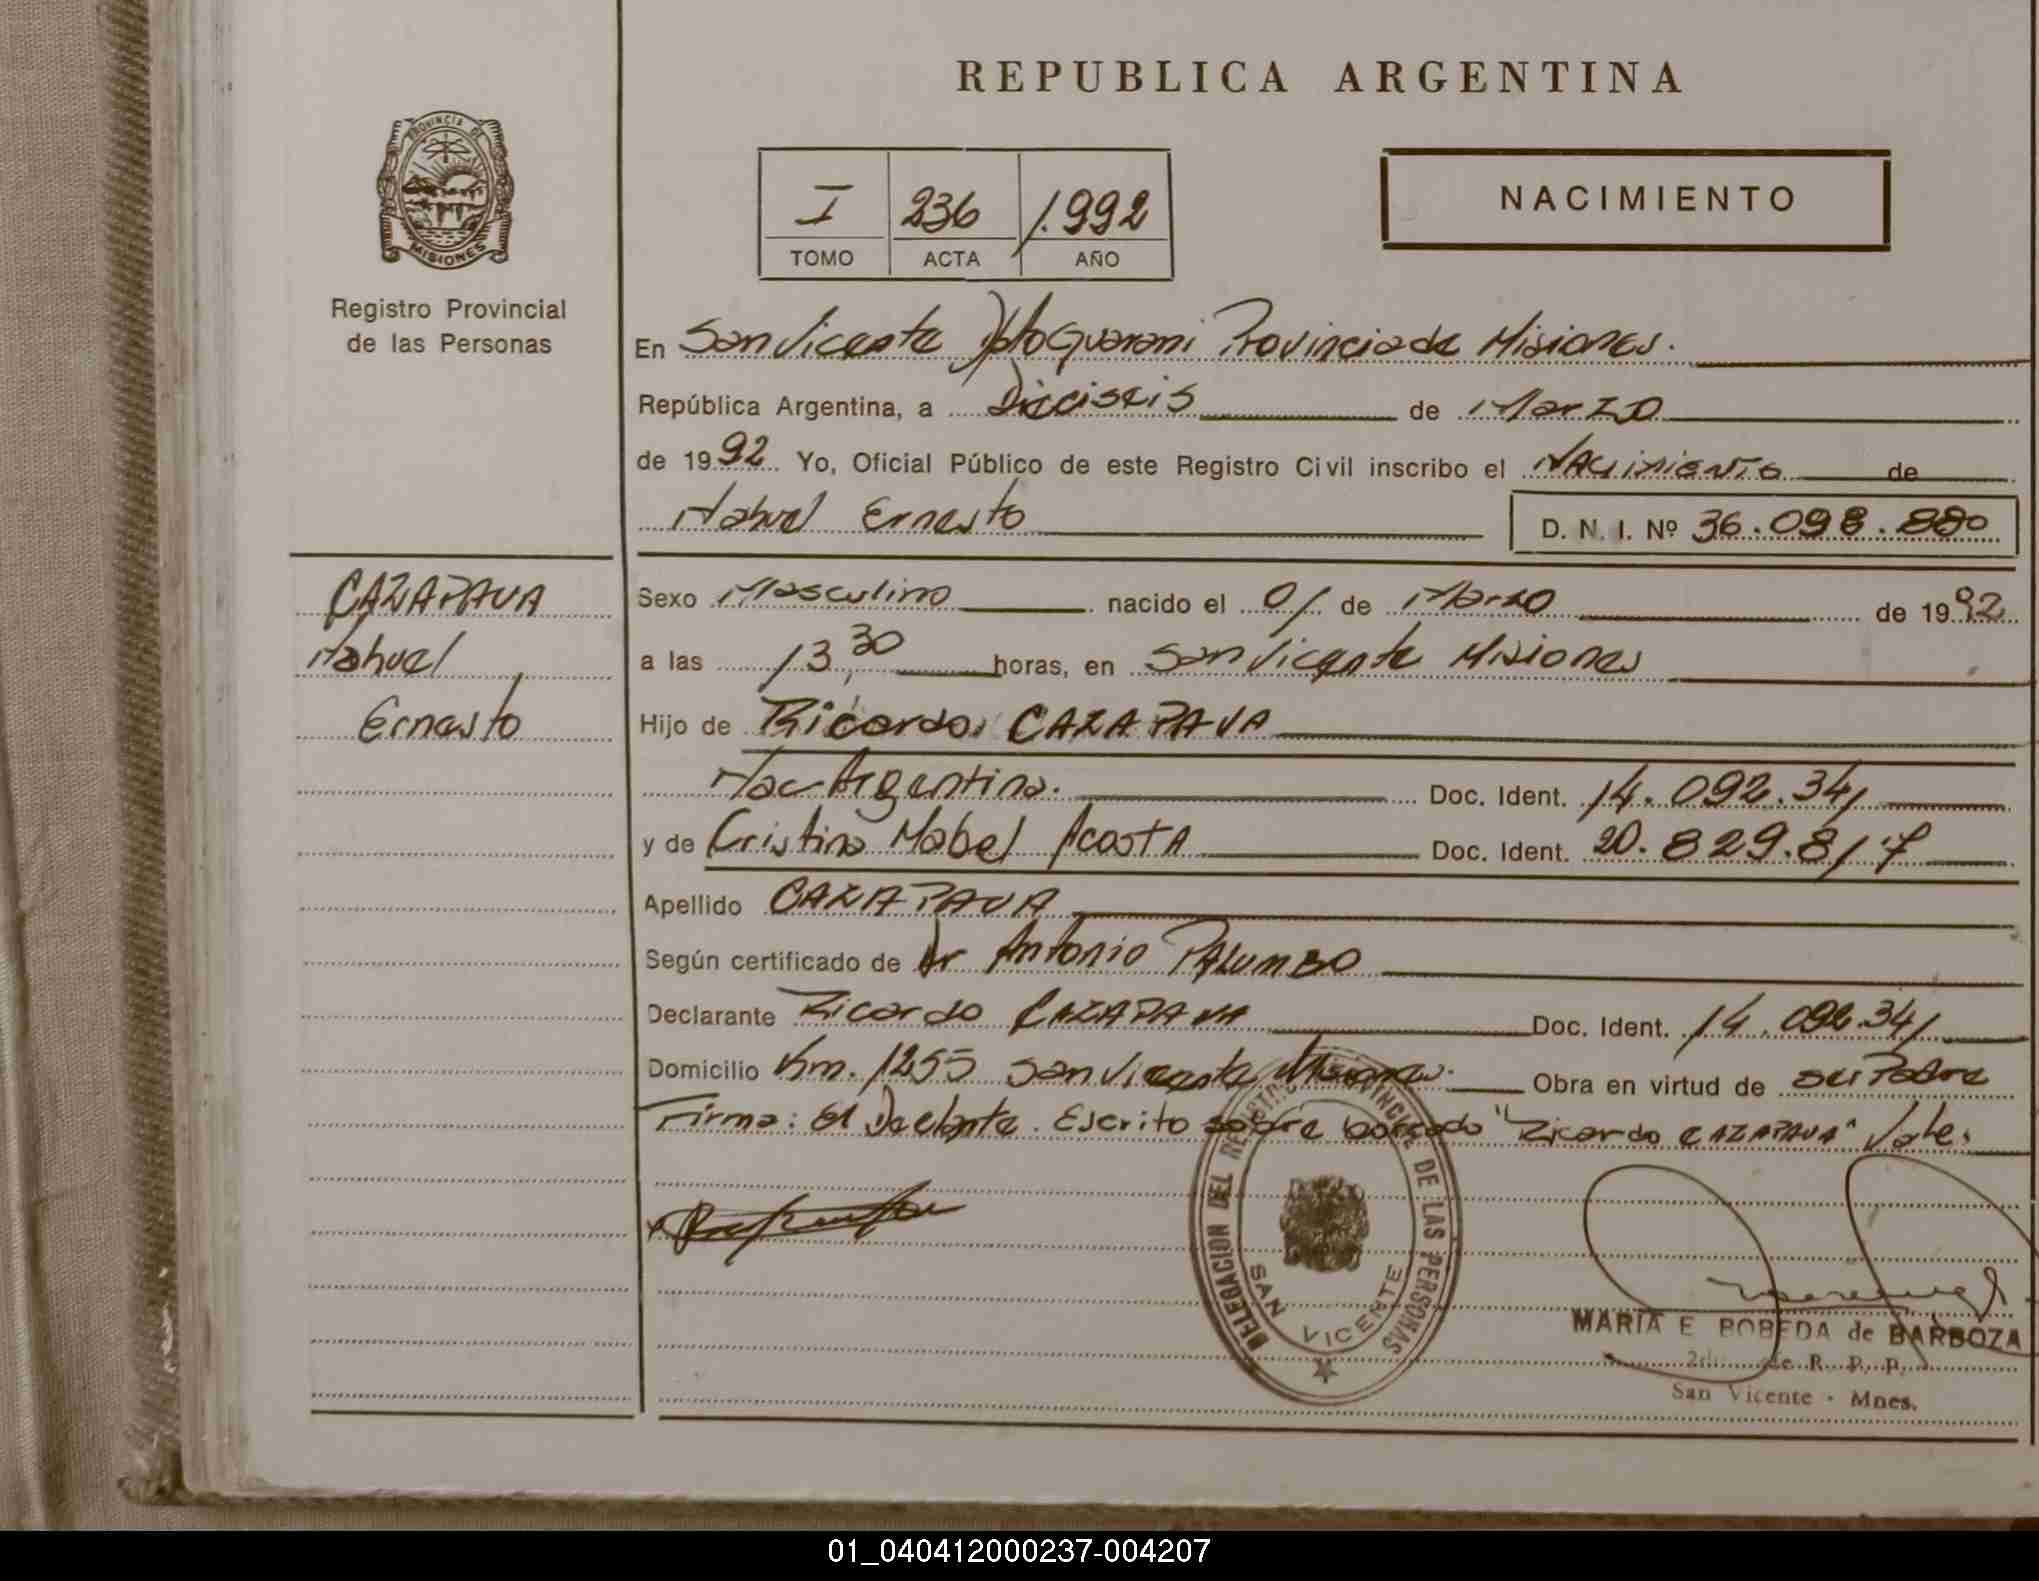 REPUBLICA ARGENTINA
PROVINCIA DE
MISIONES
Registro Provincial
de las Personas
I 236 1.992
TOMO ACTA AÑO
NACIMIENTO
En San Vicente Dpto Guarani Provincia de Misiones.
República Argentina, a Dieciseis de Marzo
de 1992 Yo, Oficial Público de este Registro Civil inscribo el Nacimiento de
Nahuel Ernesto D. N. I. Nº 36.098.880
CAZAPAVA
Nahuel
Ernesto
Sexo Masculino nacido el 01 de Marzo de 1992
a las 13,30 horas, en San Vicente Misiones
Hijo de Ricardo CAZAPAVA
Nac Argentina. Doc. Ident. 14.092.341
y de Cristina Mabel Acosta Doc. Ident. 20.829.817
Apellido CAZAPAVA
Según certificado de Dr Antonio PALUMBO
Declarante Ricardo CAZAPAVA Doc. Ident. 14.092.341
Domicilio Km. 1255 San Vicente Misiones. Obra en virtud de ser Padre
Firma: El Declante. Escrito sobre borrado "Ricardo CAZAPAVA" Vale.
DELEGACION DEL REGISTRO PROVINCIAL DE LAS PERSONAS
SAN VICENTE
MARIA E BOBEDA de BARBOZA
de R. P. P.
San Vicente - Mnes.
01_040412000237-004207